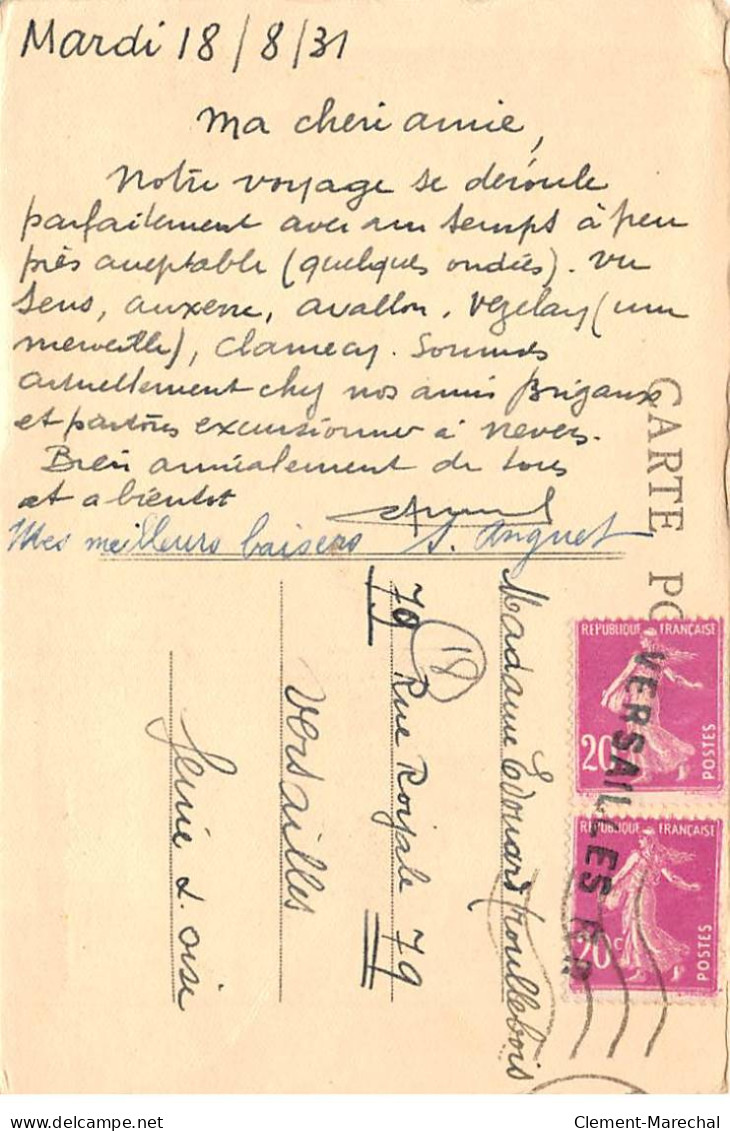 Mardi 18/8/31
Ma cheri amie,
Notre voyage se déroule
parfaitement avec un temps à peu
près acceptable (quelques ondées). Vu
Sens, auxerre, avallon, Vezelay (une
merveille), Clamecy. Sommes
actuellement chez nos amis Brigaux
et partons excursionner à nevers.
Bien amicalement de tous
et a bientot
Mes meilleurs baisers S. Anquet
CARTE PO
Madame Edouard Troullebois
70 Rue Royale 79
18
Versailles
Seine & oise
REPUBLIQUE FRANÇAISE
20c
POSTES
REPUBLIQUE FRANÇAISE
20c
POSTES
VERSAILLES R.P
Clement-Marechal